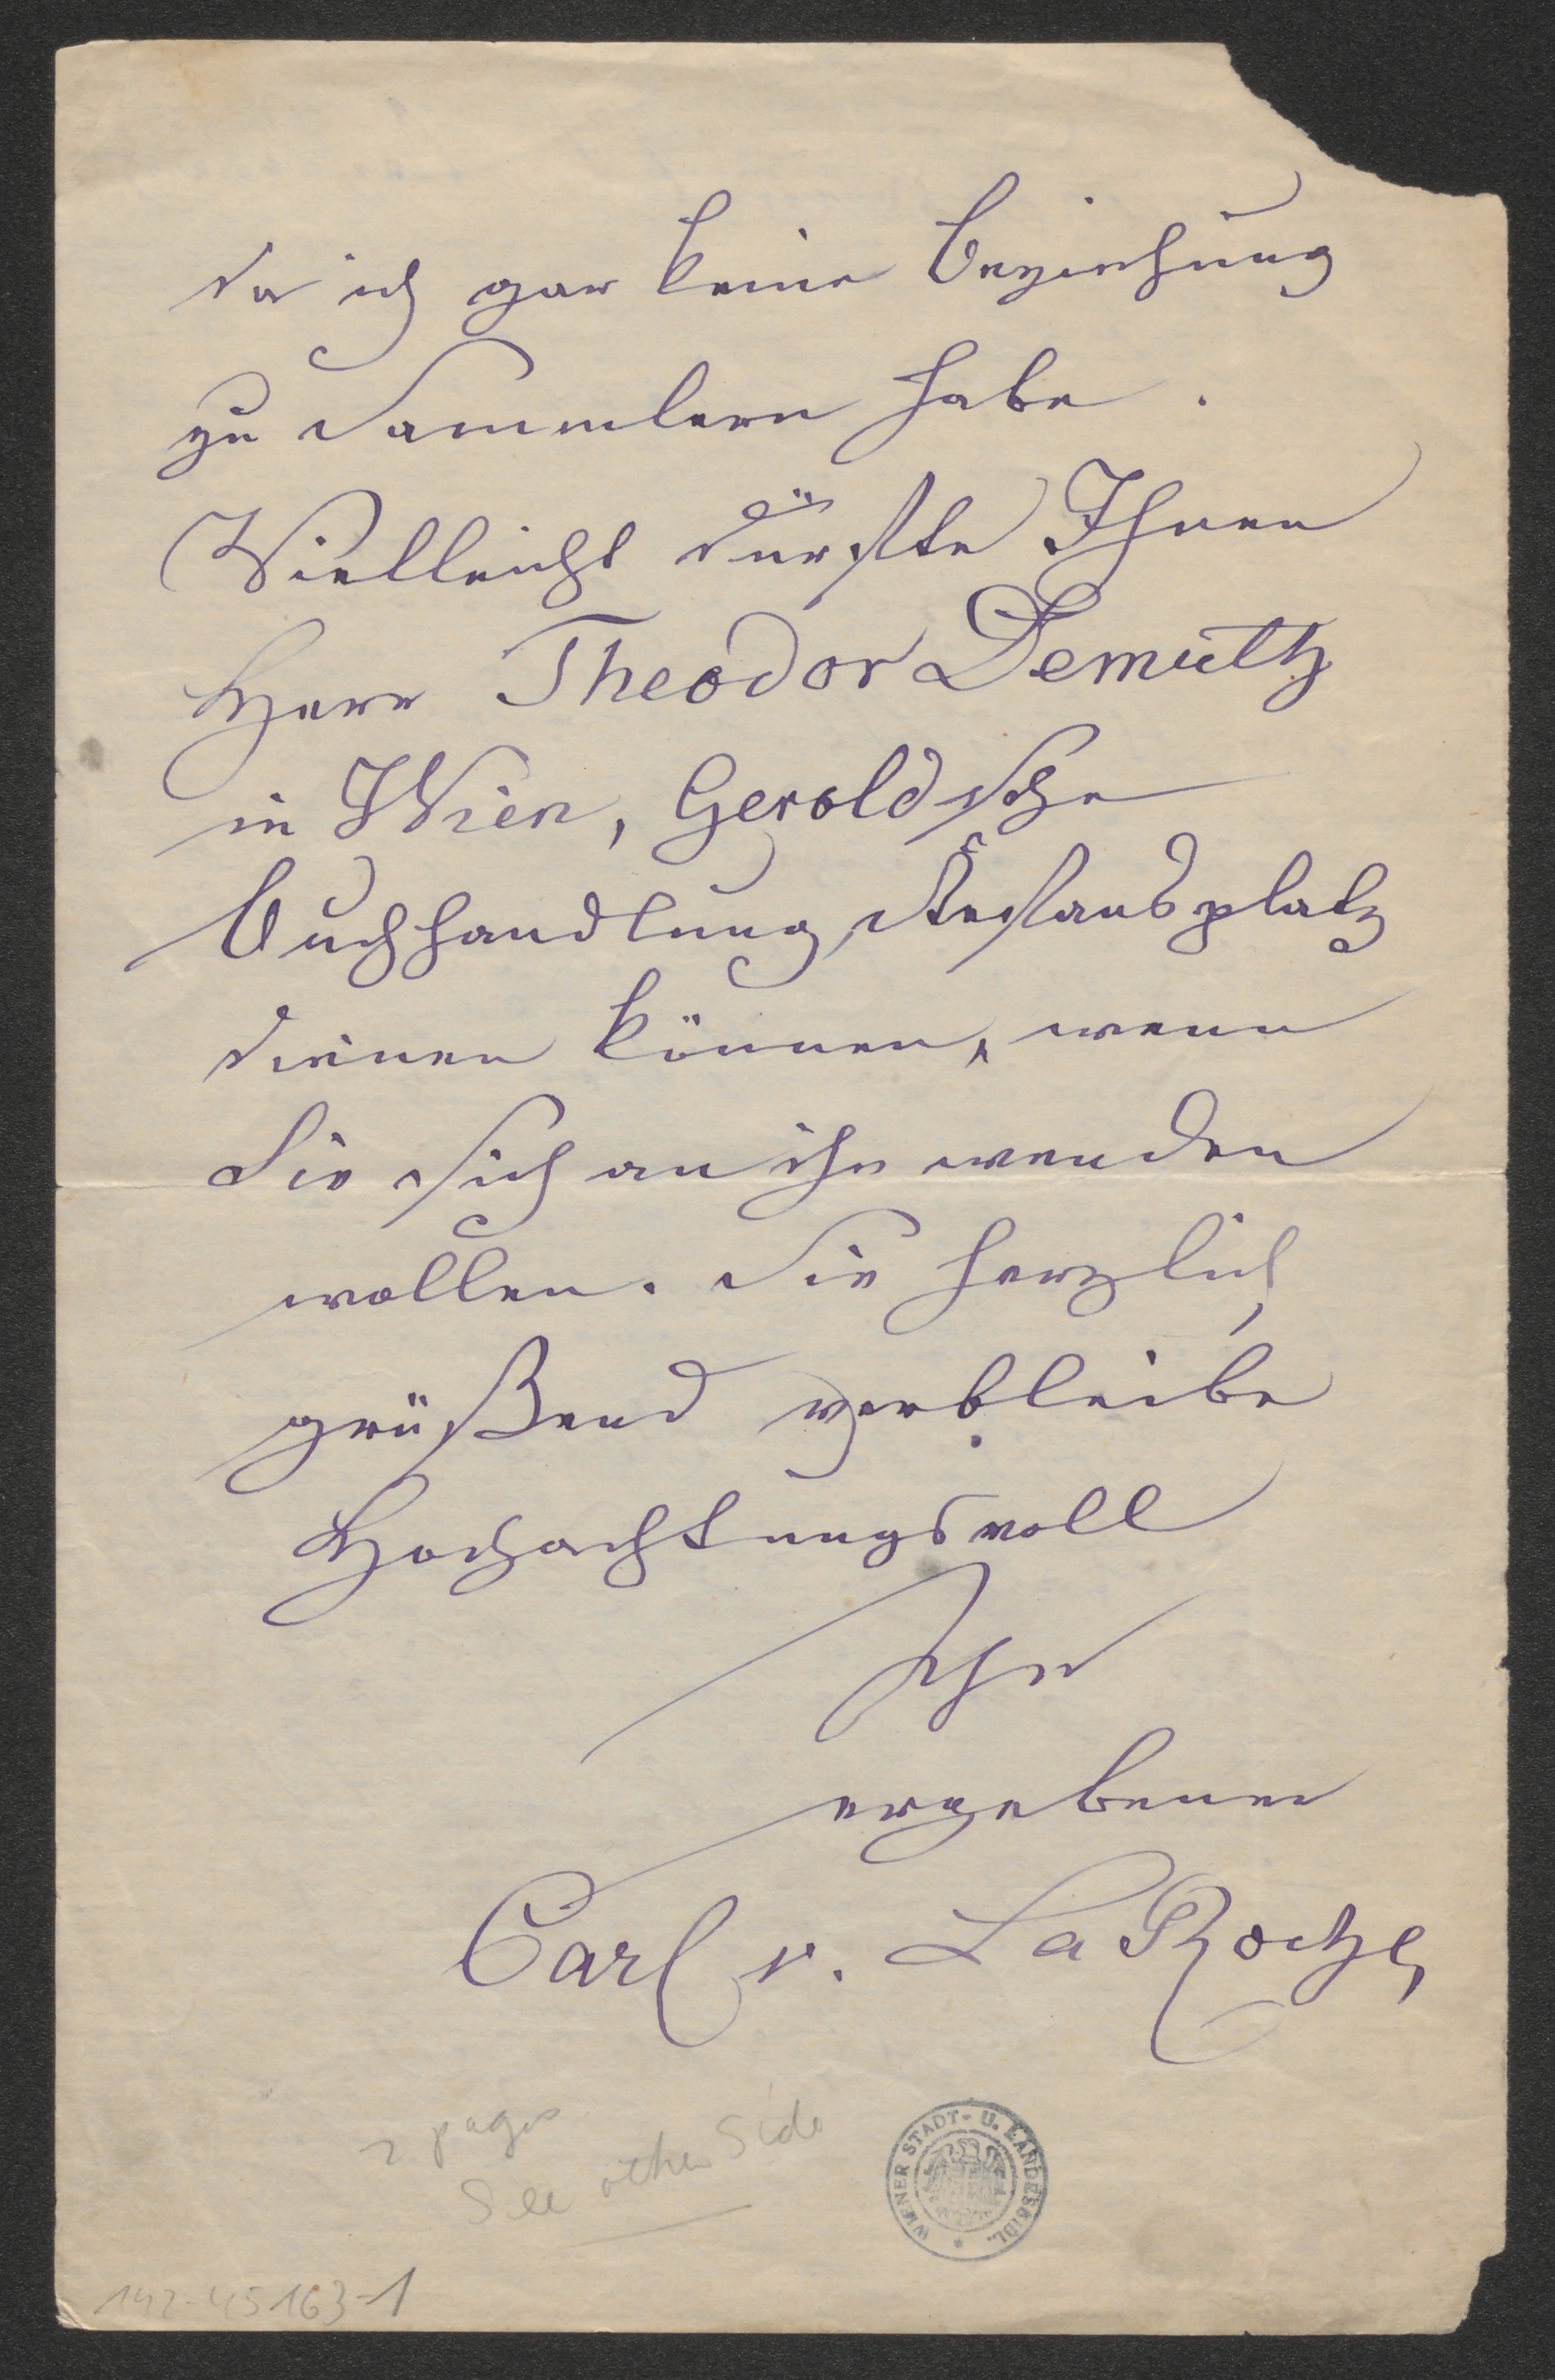 da ich gar keine Beziehung
zu Sammlern habe.
Vielleicht dürfte Ihnen
Herr Theodor Demuth
in Wien, Gerold'sche
Buchhandlung, Stefansplatz
dienen können, wenn
Sie sich an ihn wenden
wollen. Sie herzlich
grüßend verbleibe
Hochachtungsvoll
Ihr
ergebener
Carl v. LaRoche
2 pages
See other side
WIENER STADT- U. LANDESBIBL.
142-45163-1